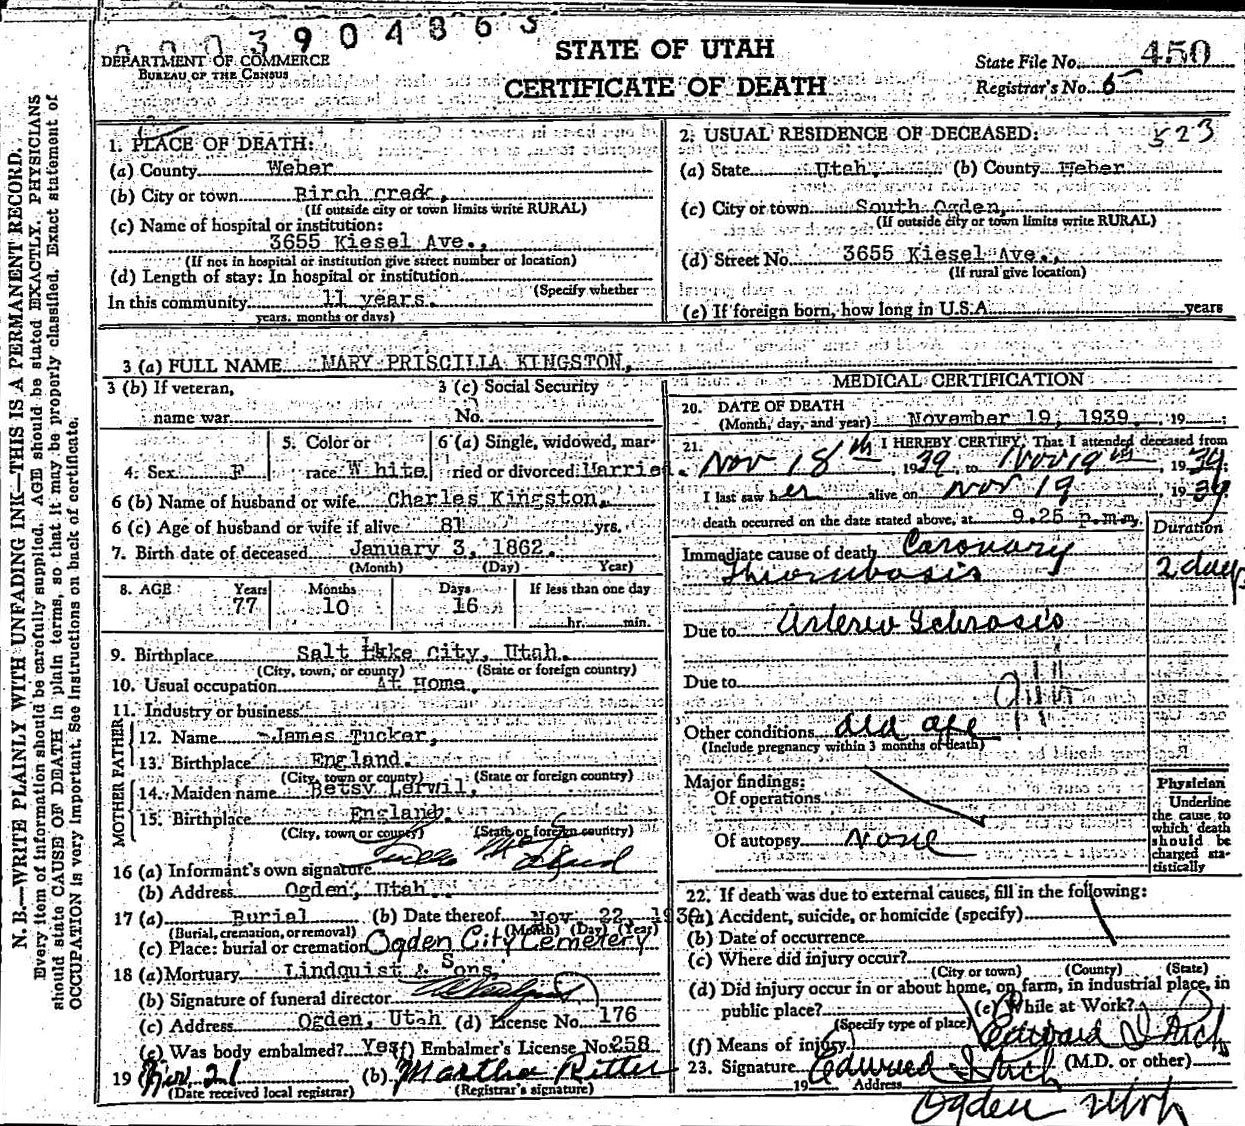 0003904863
DEPARTMENT OF COMMERCE
BUREAU OF THE CENSUS
STATE OF UTAH
CERTIFICATE OF DEATH
State File No. 450
Registrar's No. 6
N. B.—WRITE PLAINLY WITH UNFADING INK—THIS IS A PERMANENT RECORD.
Every item of information should be carefully supplied. AGE should be stated EXACTLY. PHYSICIANS
should state CAUSE OF DEATH in plain terms, so that it may be properly classified. Exact statement of
OCCUPATION is very important. See instructions on back of certificate.
1. PLACE OF DEATH:
(a) County Weber
(b) City or town Birch Creek,
(If outside city or town limits write RURAL)
(c) Name of hospital or institution:
3655 Kiesel Ave.,
(If not in hospital or institution give street number or location)
(d) Length of stay: In hospital or institution
(Specify whether
In this community 11 years.
years, months or days)
2. USUAL RESIDENCE OF DECEASED: 523
(a) State Utah, (b) County Weber
(c) City or town South Ogden,
(If outside city or town limits write RURAL)
(d) Street No. 3655 Kiesel Ave.,
(If rural give location)
(e) If foreign born, how long in U.S.A. years
3 (a) FULL NAME MARY PRISCILLA KINGSTON,
3 (b) If veteran,
name war
3 (c) Social Security
No.
4. Sex F
5. Color or
race White
6 (a) Single, widowed, mar-
ried or divorced Married.
6 (b) Name of husband or wife Charles Kingston,
6 (c) Age of husband or wife if alive 81 yrs.
7. Birth date of deceased January 3, 1862.
(Month) (Day) Year)
8. AGE Years 77 Months 10 Days 16 If less than one day
hr. min.
9. Birthplace Salt Lake City, Utah.
(City, town, or county) (State or foreign country)
10. Usual occupation At Home.
11. Industry or business
FATHER
12. Name James Tucker,
13. Birthplace England.
(City, town or county) (State or foreign country)
MOTHER
14. Maiden name Betsy Lerwil,
15. Birthplace England.
(City, town or county) (State or foreign country)
16 (a) Informant's own signature
(b) Address Ogden, Utah
17 (a) Burial (b) Date thereof Nov. 22, 1939
(Burial, cremation, or removal) (Month) (Day) (Year)
(c) Place: burial or cremation Ogden City Cemetery
18 (a) Mortuary Lindquist & Sons,
(b) Signature of funeral director
(c) Address Ogden, Utah (d) License No. 176
(e) Was body embalmed? Yes (f) Embalmer's License No. 258
19 (a) Nov. 21 (b) Martha Ritter
(Date received local registrar) (Registrar's signature)
MEDICAL CERTIFICATION
20. DATE OF DEATH
(Month, day, and year) November 19, 1939. , 19 ;
21. I HEREBY CERTIFY, That I attended deceased from
Nov 18th, 1939, to Nov 19th, 1939;
I last saw her alive on Nov 19, 1939
death occurred on the date stated above, at 9.25 p.m.m.
Duration
Immediate cause of death Coronary
Thrombosis 2 days
Due to Arterio Sclrosis
Due to
Other conditions old age
(Include pregnancy within 3 months of death)
Major findings:
Of operations
Of autopsy None
Physician
Underline
the cause to
which death
should be
charged sta-
tistically
22. If death was due to external causes, fill in the following:
(a) Accident, suicide, or homicide (specify)
(b) Date of occurrence
(c) Where did injury occur?
(City or town) (County) (State)
(d) Did injury occur in or about home, on farm, in industrial place, in
public place? (e) While at Work?
(Specify type of place)
(f) Means of injury Edward I Rich
23. Signature Edward I Rich (M.D. or other)
19 Address
Ogden Utah